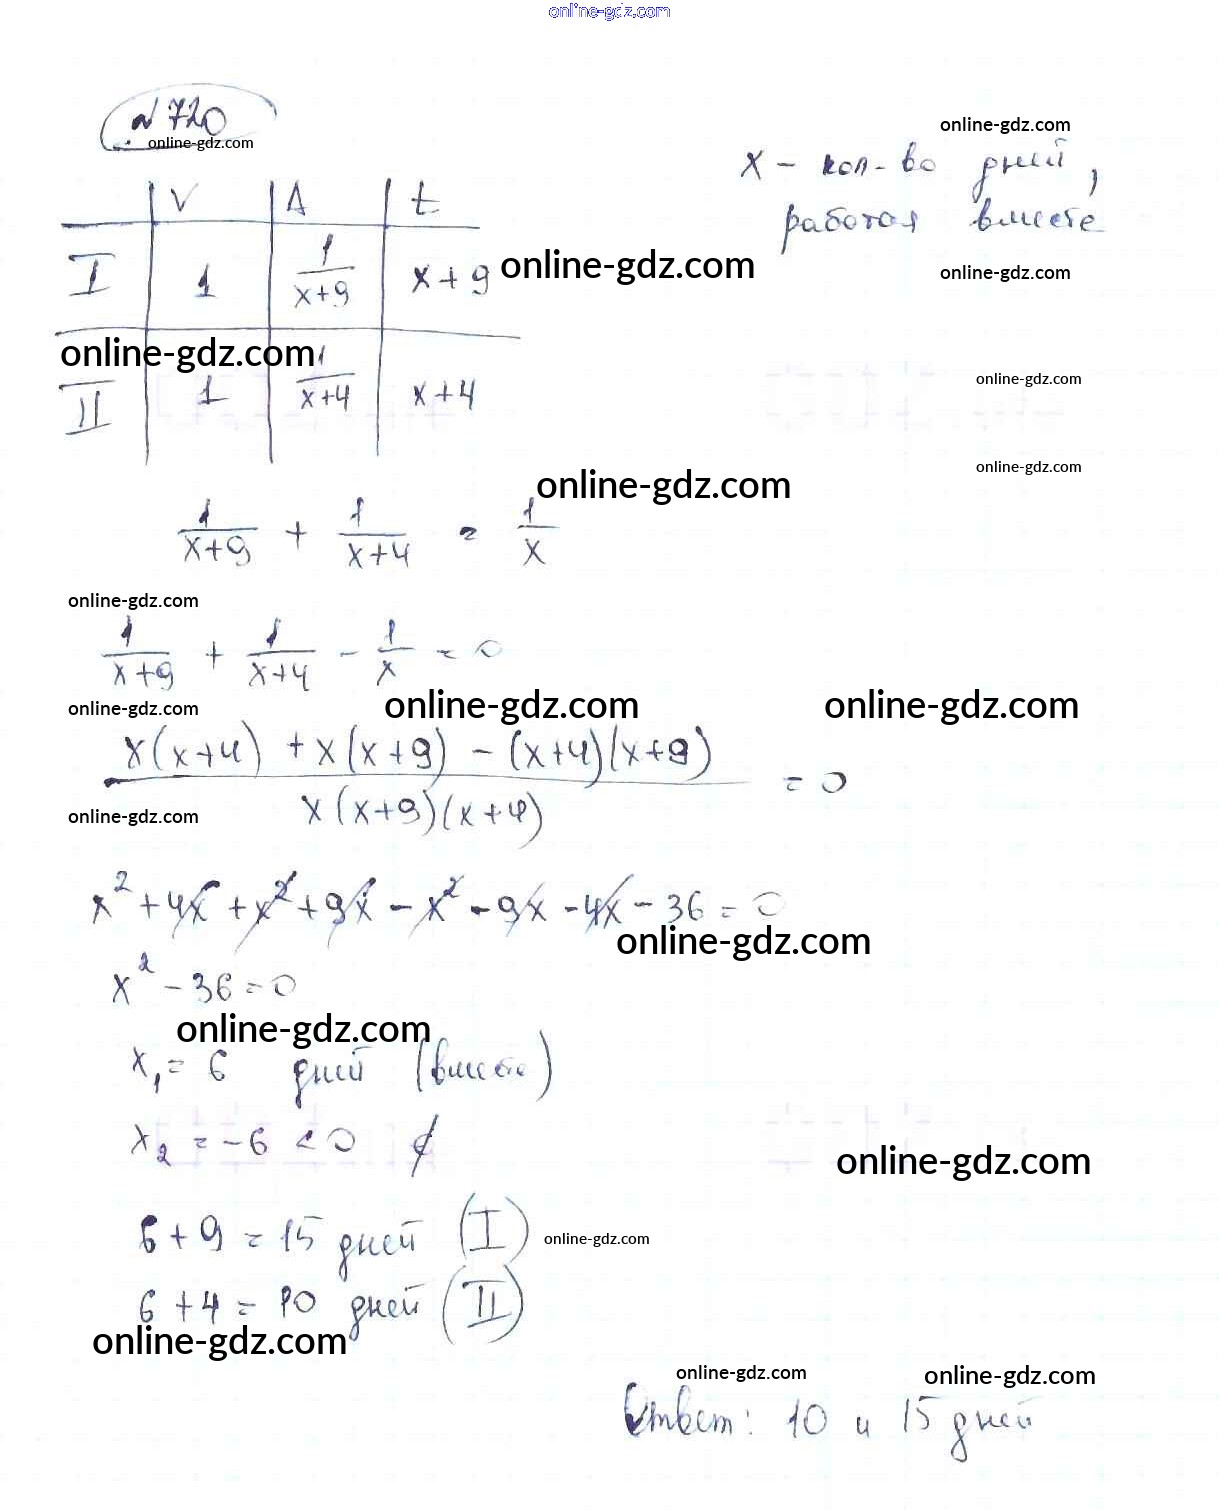 online-gdz.com
№ 720
online-gdz.com
online-gdz.com
x - кол-во дней,
работая вместе
V A t
I 1 1/(x+9) x+9
online-gdz.com
online-gdz.com
online-gdz.com
II 1 1/(x+4) x+4
online-gdz.com
online-gdz.com
online-gdz.com
1/(x+9) + 1/(x+4) = 1/x
online-gdz.com
1/(x+9) + 1/(x+4) - 1/x = 0
online-gdz.com
online-gdz.com
online-gdz.com
(x(x+4) + x(x+9) - (x+4)(x+9))/(x(x+9)(x+4)) = 0
online-gdz.com
x² + 4x + x² + 9x - x² - 9x - 4x - 36 = 0
online-gdz.com
x² - 36 = 0
online-gdz.com
x₁ = 6 дней (вместе)
x₂ = -6 < 0 ∉
online-gdz.com
6 + 9 = 15 дней (I)
online-gdz.com
6 + 4 = 10 дней (II)
online-gdz.com
online-gdz.com
online-gdz.com
Ответ: 10 и 15 дней